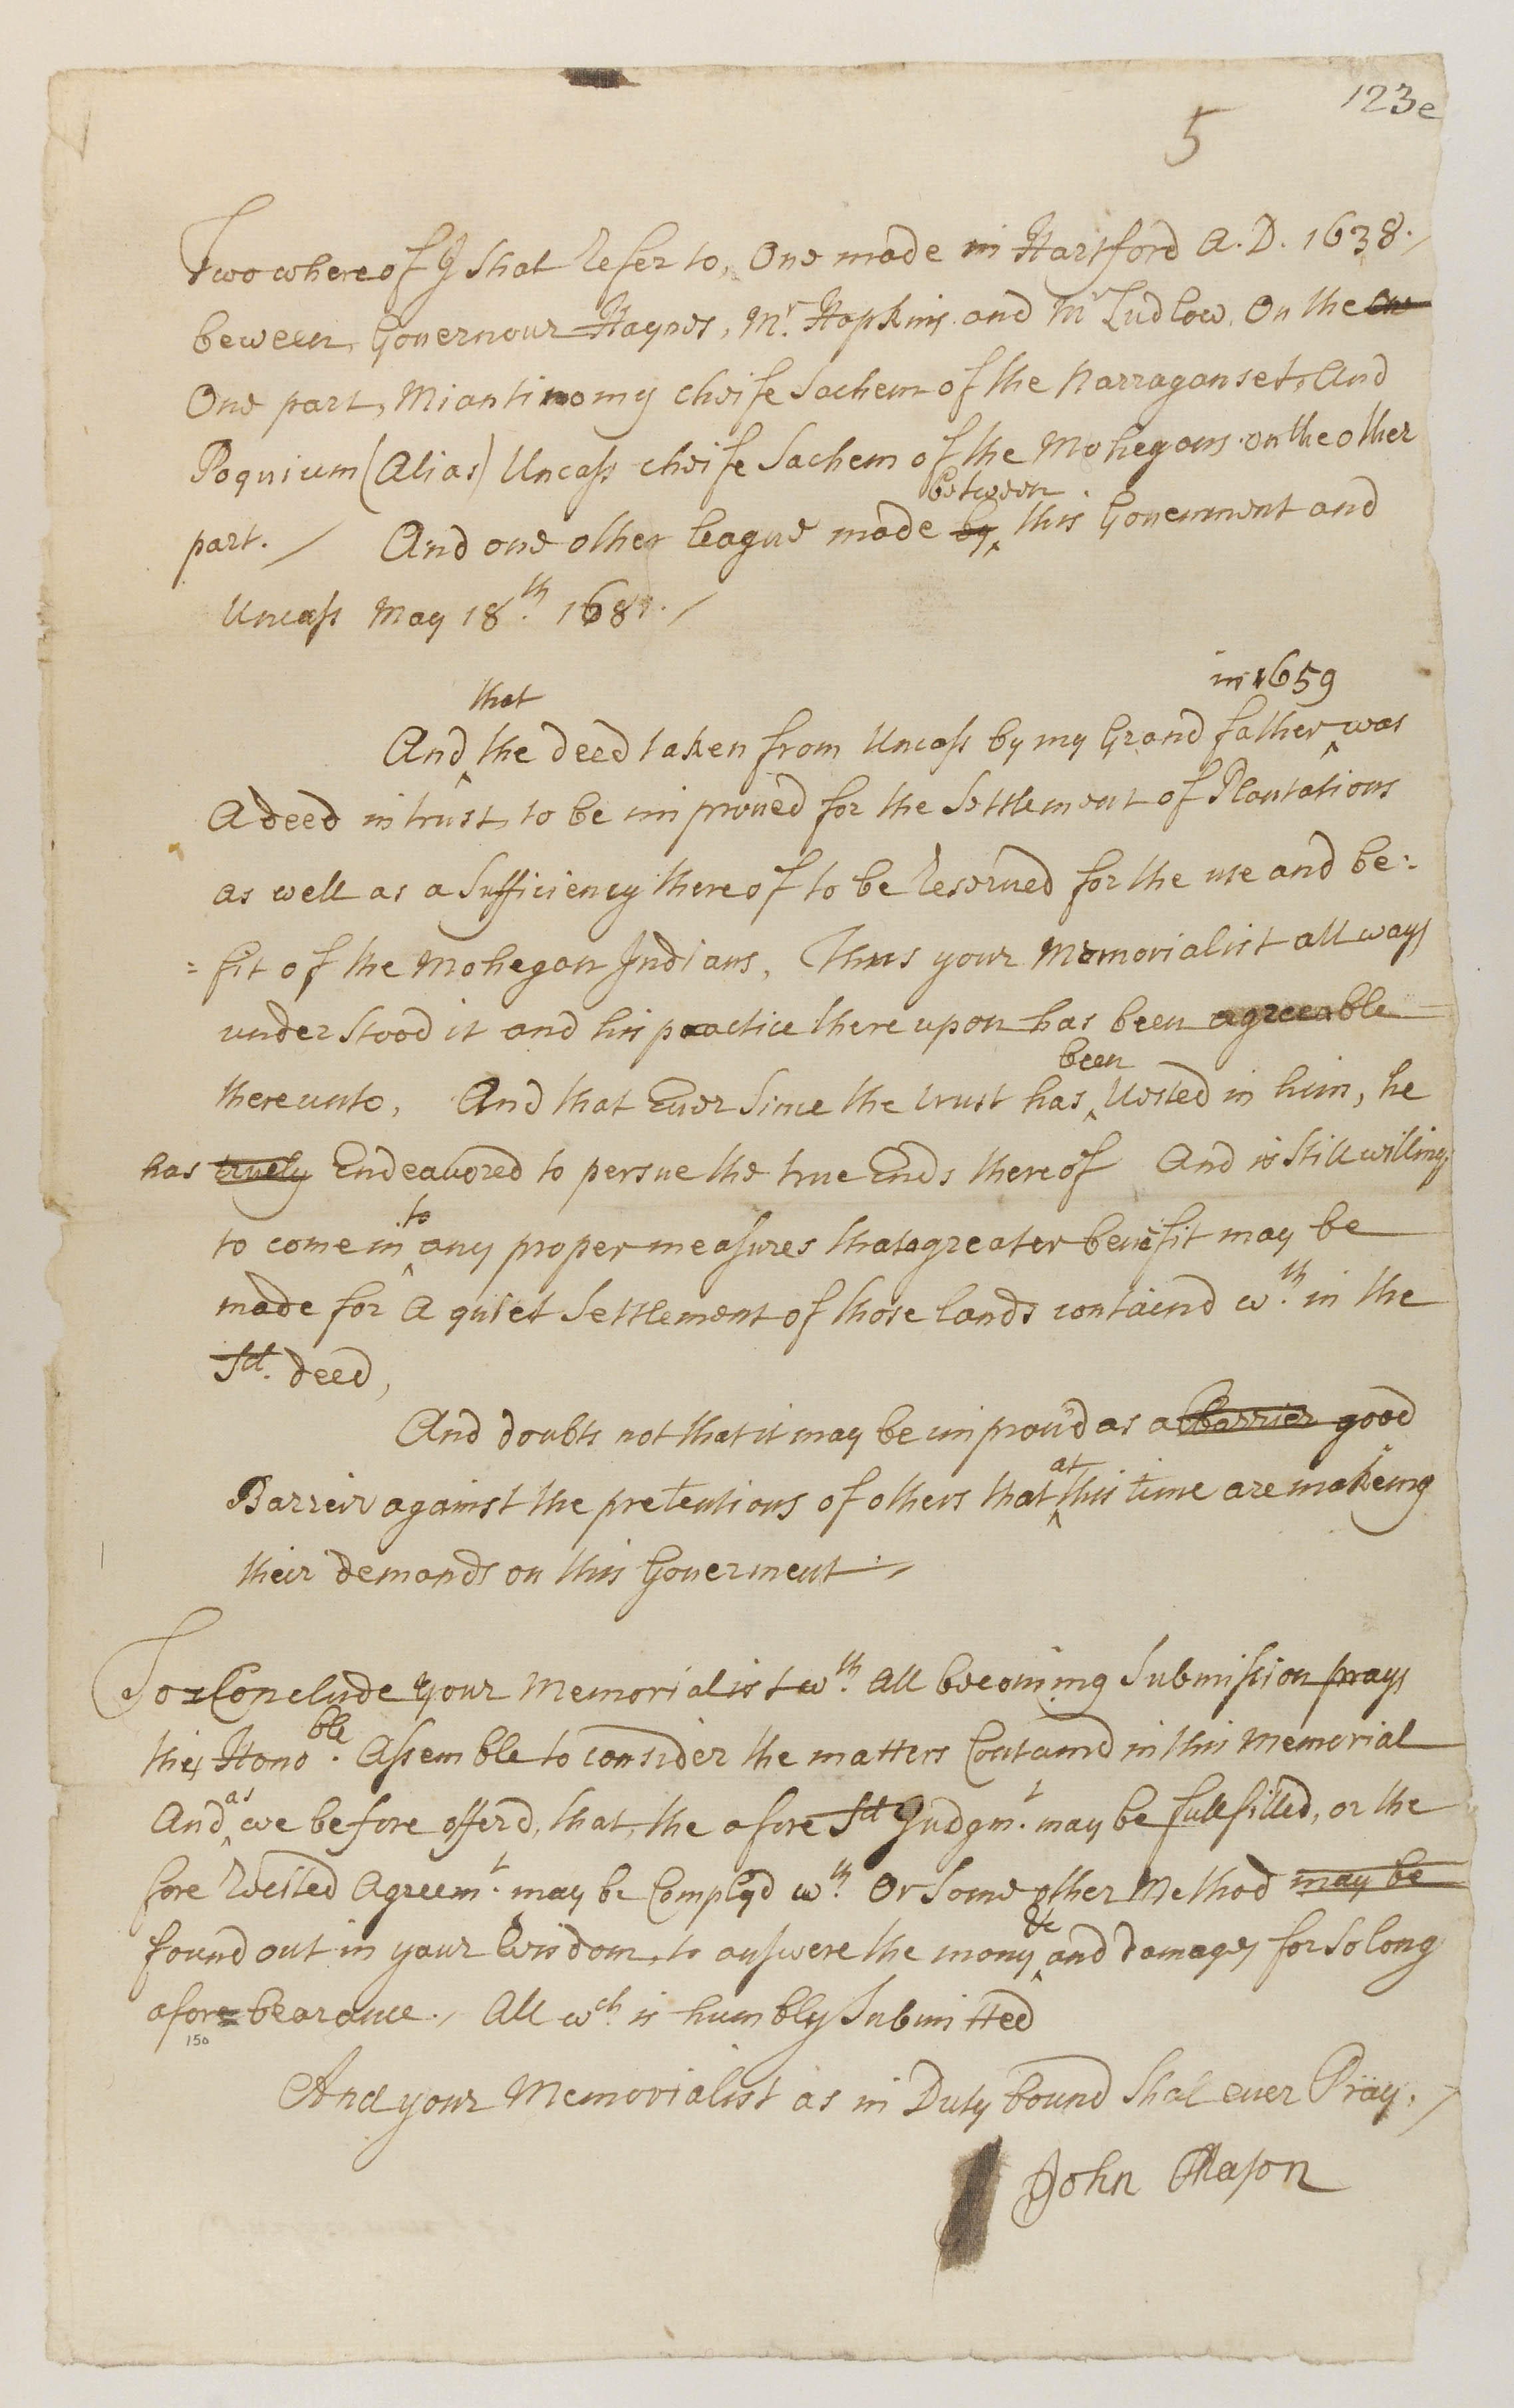 123e
5
Two whereof I shal Refer to, One made in Hartford A.D. 1638.
beween Governour Haynes, Mr. Hopkins and Mr Ludlow, On the one
One part, Miantinomy cheife Sachem of the Narraganset, And
Poquium (Alias) Uncass cheife Sachem of the Mohegans on the other
between
part. And one other league made by ^ this Government and
Uncass May 18th. 1681.
that in 1659
And ^ the deed taken from Uncass by my Grand father ^ was
A deed in trust, to be improued for the Settlement of Plantations
as well as a Sufficiency thereof to be Reserued for the use and be=
=fit of the Mohegan Indians, Thus your Memorialist allways
understood it and his practice there upon has been agreeable
been
thereunto, And that Euer Since the trust has ^ Uested in him, he
has truely Endeavored to persue the true Ends thereof And is Still willing
to
to come in ^ any proper measures that a greater benifit may be
made for A quiet Settlement of those lands containd wth. in the
Sd. deed,
And doubts not that it may be improu'd as a Barrier good
at
Barreir against the pretentions of others that ^ this time are makeing
their demands on this Gouerment
To Conclude your Memorialist wth. All becoming Submission prays
this Honoble. Assemble to consider the matters Containd in this Memorial
And ^as we before offerd, that, the afore Sd Judgmt. may be fullfilled, or the
fore Recited Agreemt. may be Complyd wth. Or Some other Method may be
&c
found out in your Wisdom, to answere the mony ^ and damages for So long
afore=bearance. All wch. is humbly Submitted
150
And your Memorialist as in Duty bound Shal euer Pray.
John Mason